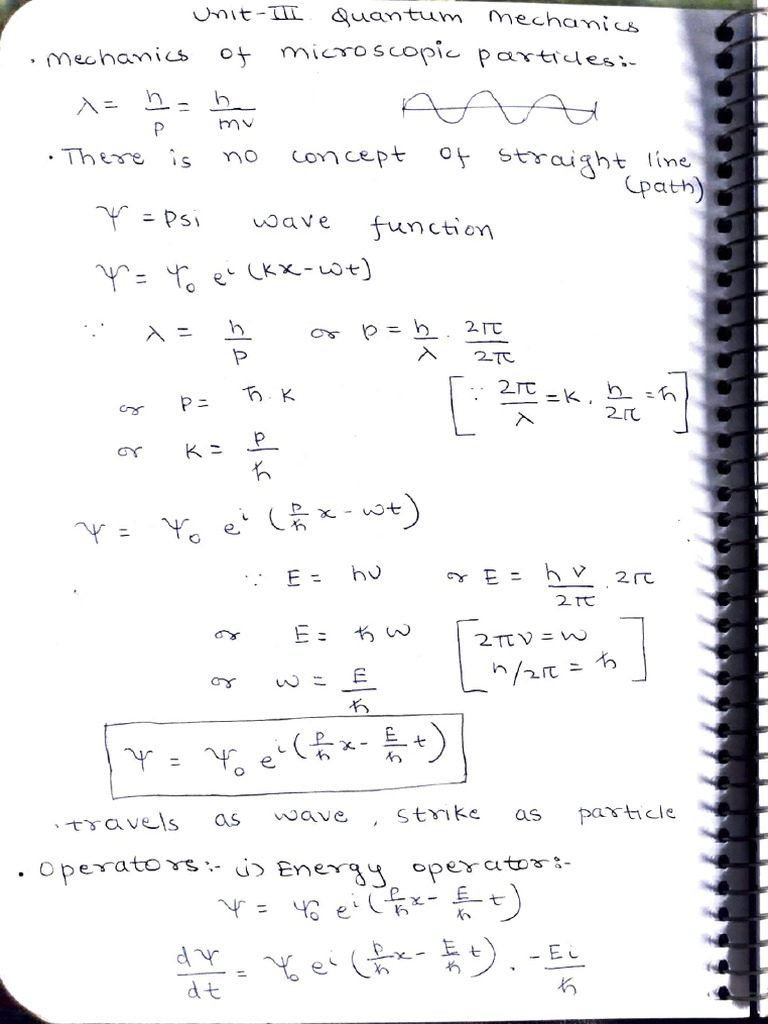 Unit-III Quantum Mechanics
• Mechanics of microscopic particles:-
λ = h/p = h/mv
• There is no concept of straight line (path)
Ψ = Psi wave function
Ψ = Ψ₀ eⁱ (Kx - ωt)
∵ λ = h/p or p = h/λ . 2π/2π
or p = ħ . K [∵ 2π/λ = K, h/2π = ħ]
or K = p/ħ
Ψ = Ψ₀ eⁱ (p/ħ x - ωt)
∵ E = hν or E = hν/2π . 2π
or E = ħ ω [2πν = ω
or ω = E/ħ h/2π = ħ]
Ψ = Ψ₀ eⁱ (p/ħ x - E/ħ t)
• travels as wave, strike as particle
• Operators:- (i) Energy operator:-
Ψ = Ψ₀ eⁱ (p/ħ x - E/ħ t)
dΨ/dt = Ψ₀ eⁱ (p/ħ x - E/ħ t) . -Ei/ħ